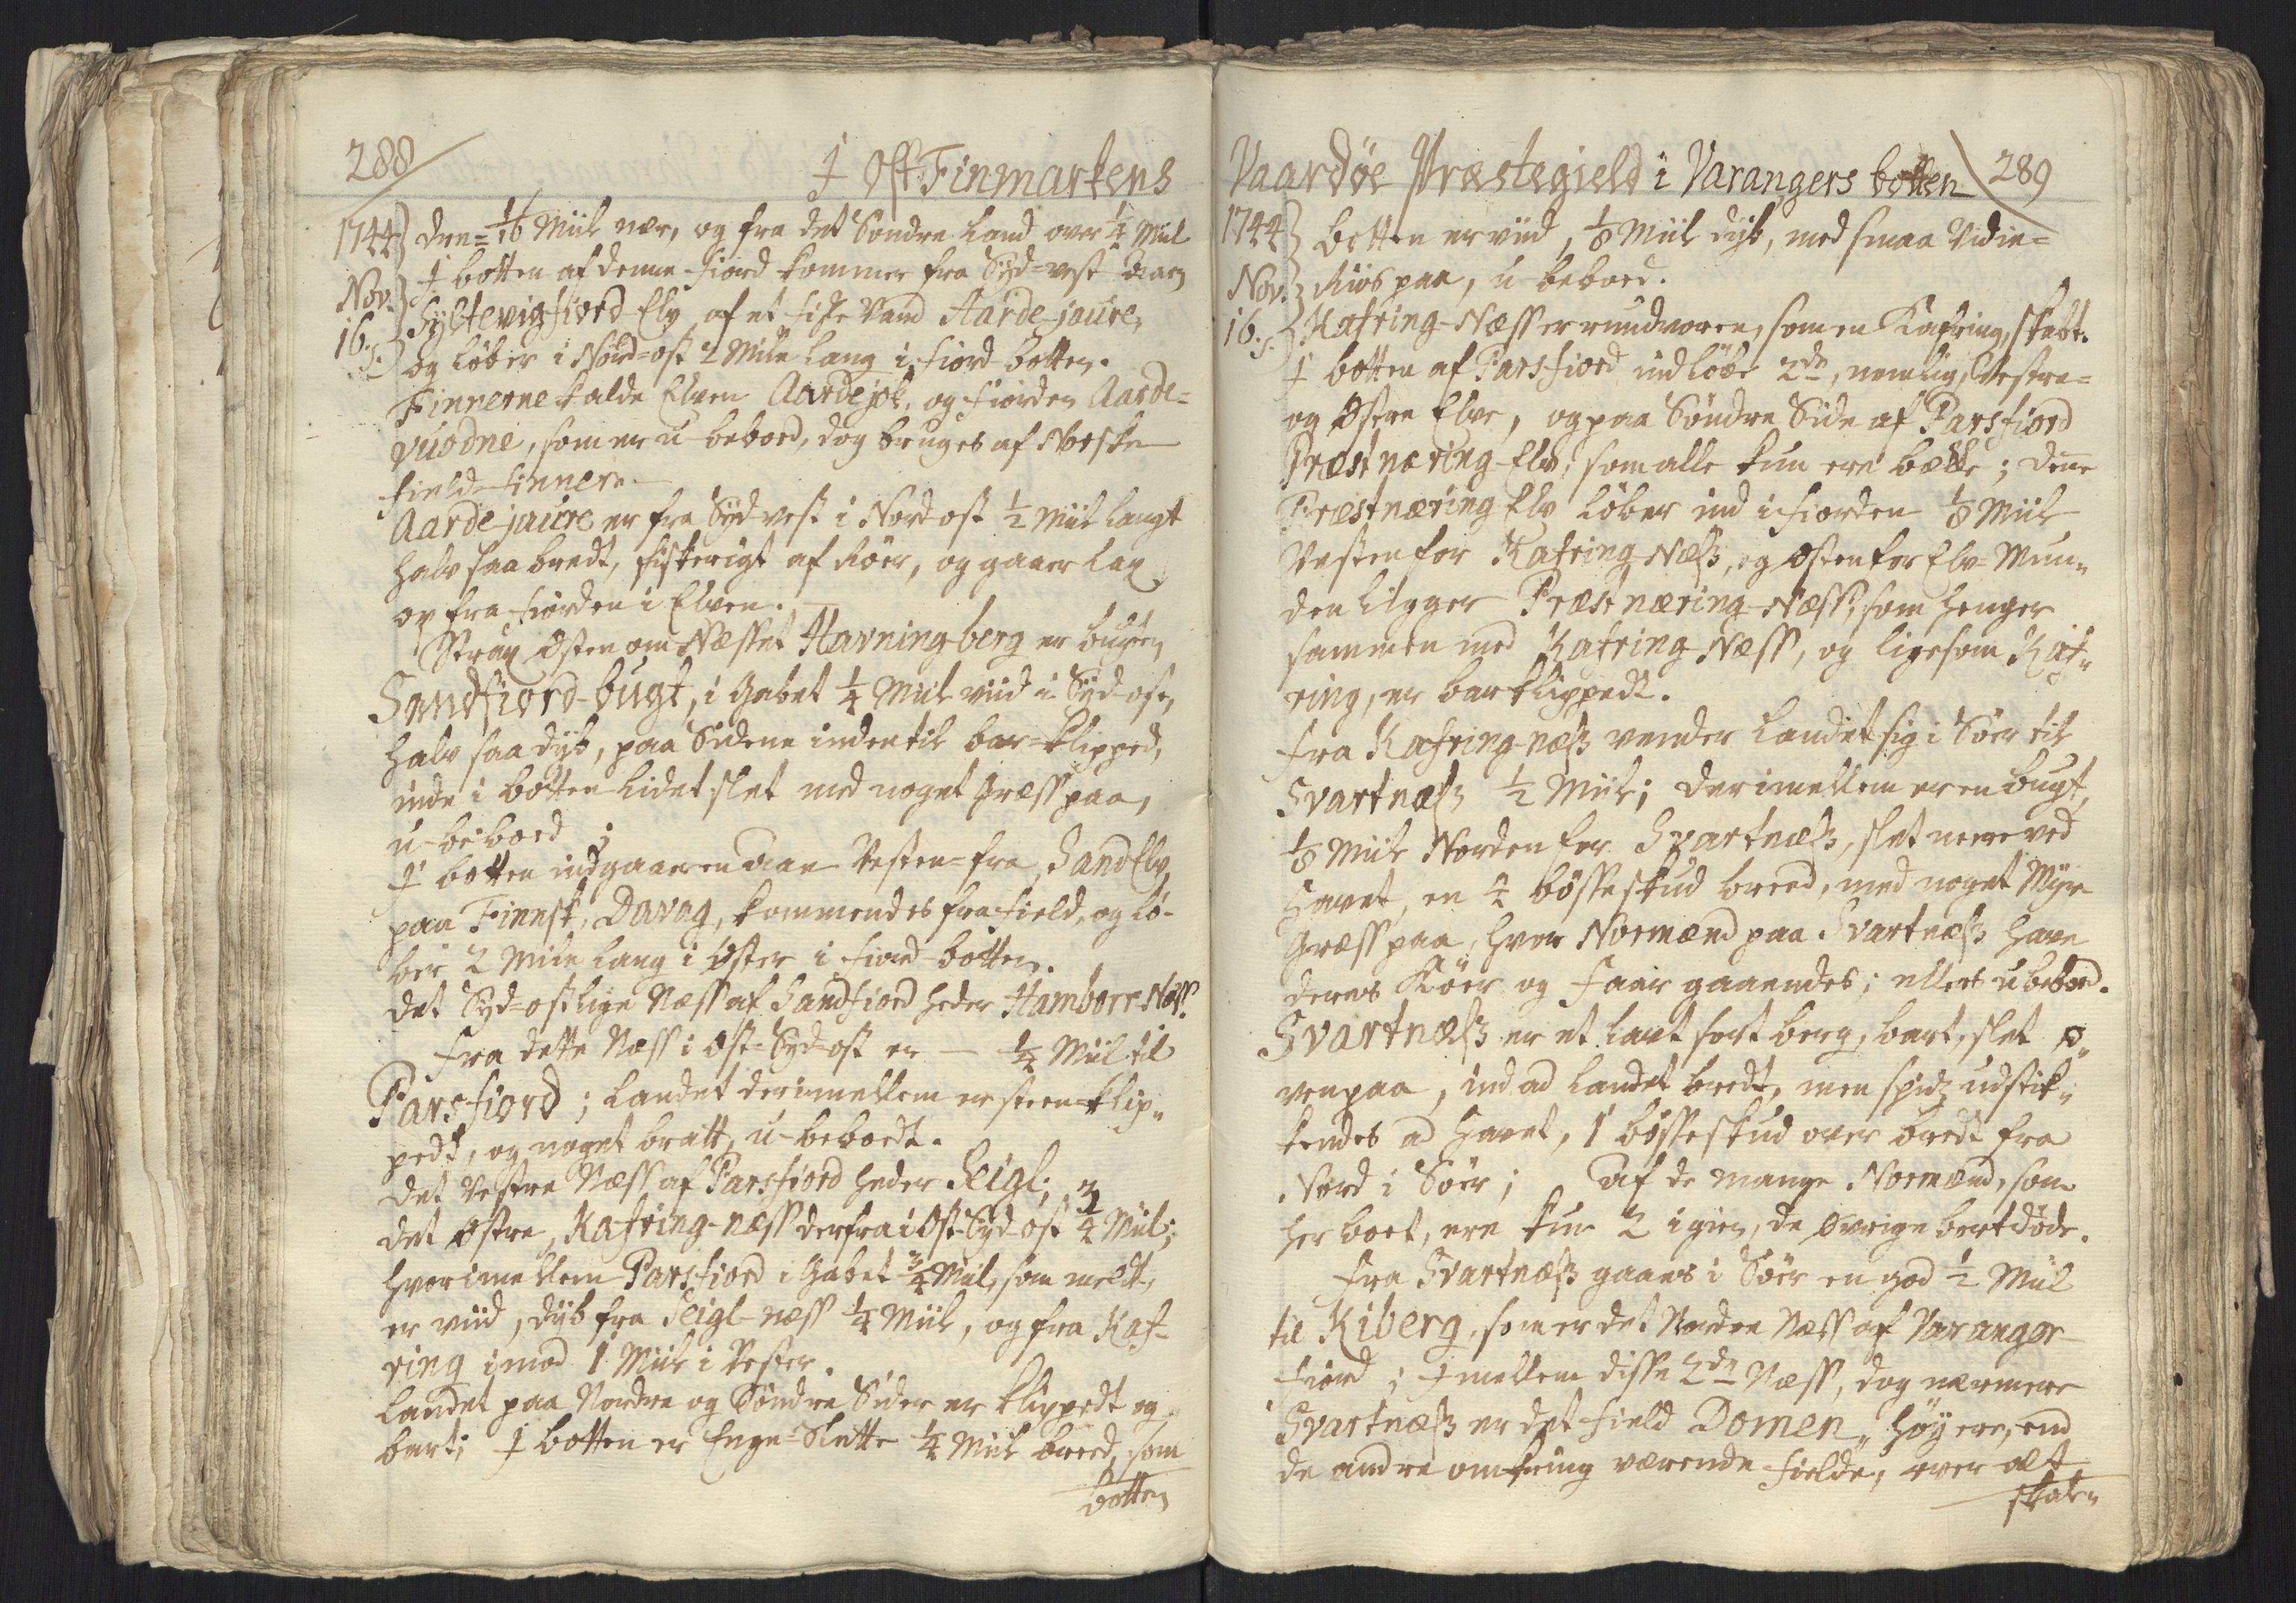 288
I Ost-Finmarkens
1744
Nov.
16. s.
den = 1/16 Miil nær, og fra det Søndre Land over 1/4 Miil
I botten af denne fiord kommer fra Syd-vest Aaen
Syltevigfiord Elv af et fiske Vand Aarde-jaure,
og løber i Nord-ost 2 Mile lang i fiord-botten.
Finnerne kalde Elven Aardejok, og fiorden Aarde-
vuodne, som er u-beboed, dog bruges af Norske
field-finner.
Aardejaure er fra Sydvest i Nordost 1/2 Miil langt
halv saa bredt, fiskerigt af Røer, og gaaer Lax
op fra fiorden i Elven.
Strax Østen om Næsset Havningberg er bugten
Sandfiord-bugt, i Gabet 1/4 Miil viid i Syd-ost,
halv saa dyb, paa Siderne indentil bar-klipped,
inde i botten lidet slet med noget Græss paa,
u-beboed;
I botten indgaaer en Aae Vesten-fra, Sand Elv,
paa Finnsk, Davag, kommendes fra field, og lø-
ber 2 Mile lang i Øster i fiord-botten.
Det Syd-ostlige Næss af Sandfiord heder Hambore Næss.
Fra dette Næss i Ost-Syd-ost er — 1/4 Miil til
Parsfiord; Landet derimellem er steen-klip-
pedt, og noget bratt, u-beboedt.
Det Vestre Næss af Parsfiord heder Seigl;
det Østre, Kafring-næss derfra i Ost-Syd-ost 3/4 Miil;
hvorimellem Parsfiord i Gabet 3/4 Miil, som meldt,
er viid, dyb fra Seigl-næss 1/4 Miil, og fra Kaf-
ring imod 1 Miil i Vester.
Landet paa Nordre og Søndre Sider er klippedt og
bart; I botten er Enge-Slette 1/4 Miil breed, som
botten
Vaardøe Præstegield i Varangers botten
289
1744
Nov.
16. s.
botten er viid, 1/8 Miil dyb, med smaa Vidie-
Riis paa, u-beboed.
Kafring-Næss er rundvoren, som en Kafring, skabt.
I botten af Parsfiord indløbe 2de, nemlig, Vestre-
og Østre Elve, og paa Søndre Side af Parsfiord
Præstnæring-Elv, som alle kun ere bække; denne
Præstnæring Elv løber ind i fiorden 1/8 Miil
Vesten for Kafring-Næss, og Østen for Elv-Mun-
den ligger Præstnæring-Næss, som henger
sammen med Kafring Næss, og ligesom Kaf-
ring, er barklippedt.
Fra Kafring-næss vender Landet sig i Sør til
Svartnæss 1/2 Miil; derimellem er en bugt,
1/8 Miil Norden for Svartnæss, slet neere ved
Havet, en 4 bøsseskud breed, med noget Myr-
Græss paa, hvor Normænd paa Svartnæss have
deres Køer og Faar gaaendes; ellers ubeboed.
Svartnæss er et lavt sort berg, bart, slet o-
ven paa, ind ad Landet bredt, men spidz udstik-
kendes ad Havet, 1 bøsseskud over bredt fra
Nord i Sør; Af de mange Normænd, som
her boet, ere kun 2 igien, de øvrige bortdøde.
Fra Svartnæss gaaes i Sør en god 1/2 Miil
til Kiberg, som er det Nordre Næss af Varanger-
fiord; Imellem disse 2de Næss, dog nærmere
Svartnæss er det field Domen, høyere, end
de andre omkring værende fielde, over alt
skale-